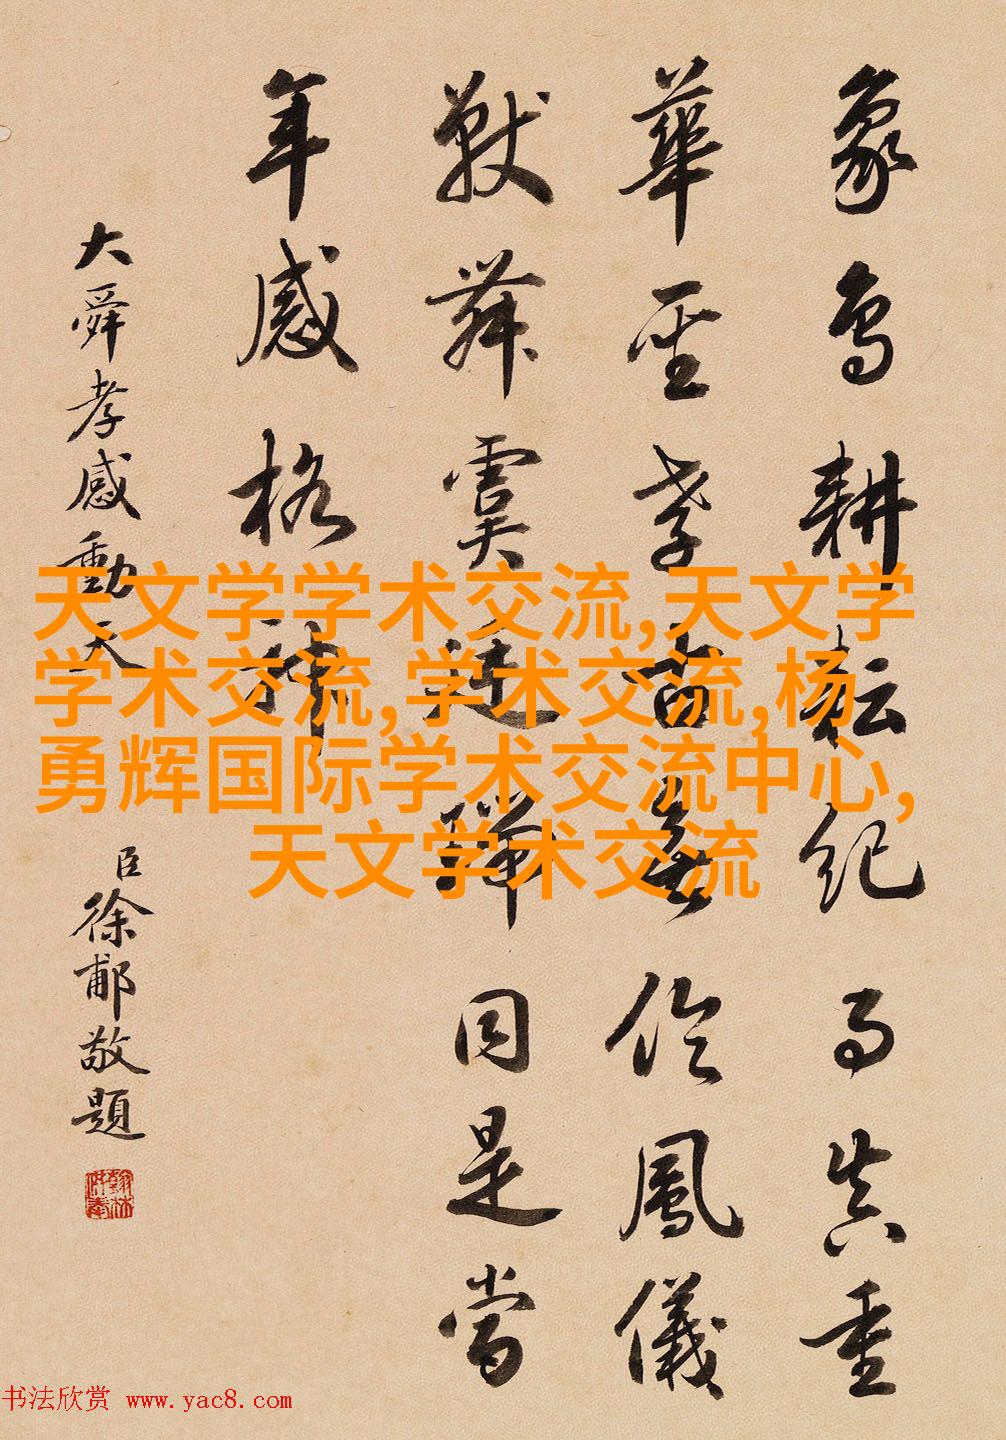 象鳥耕耘紀事真重
華至孝古無倫鳳儀
獸舞虞廷瑞同是當
年感格神
大舜孝感動天
臣徐郙敬題
天文学学术交流,天文学
学术交流,学术交流,杨
勇辉国际学术交流中心,
天文学术交流
书法欣赏 www.yac8.com